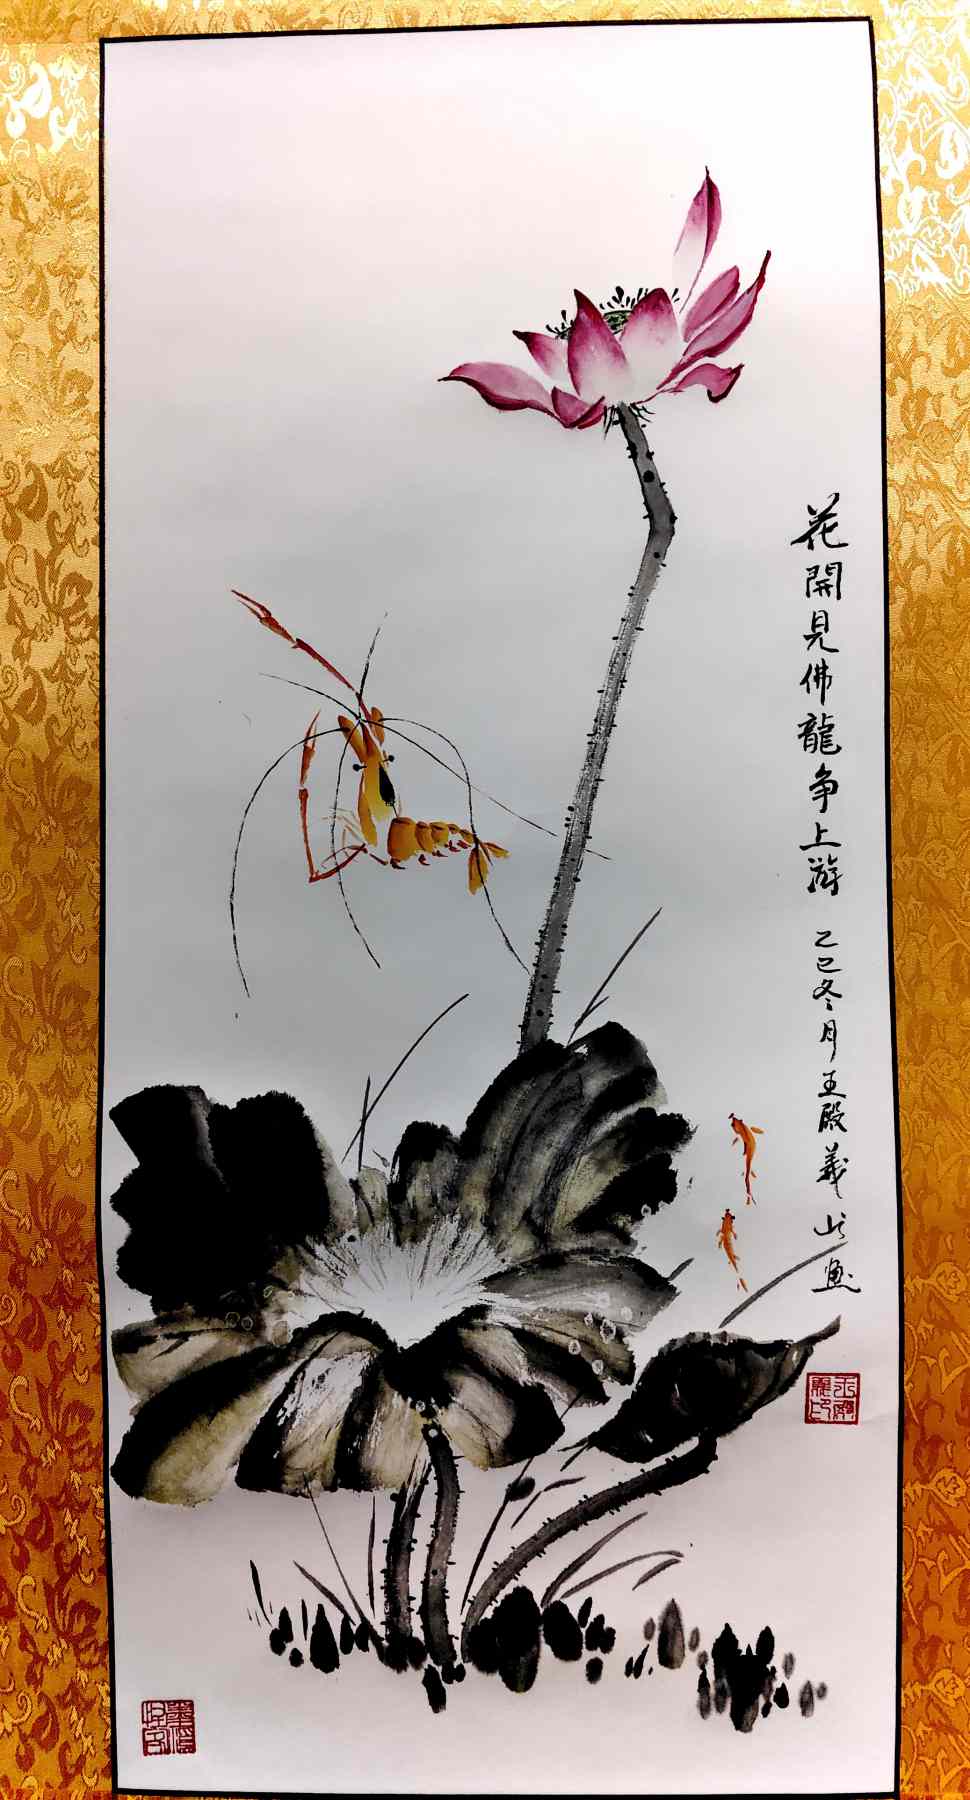 花開見佛龍争上游 乙巳冬月王殿義